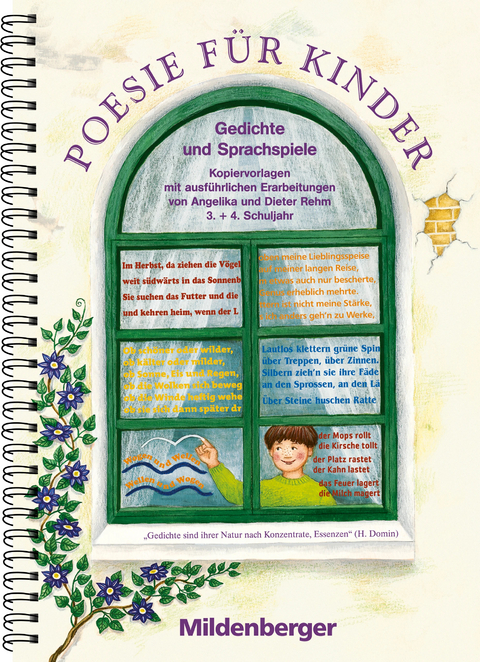 POESIE FÜR KINDER
Gedichte
und Sprachspiele
Kopiervorlagen
mit ausführlichen Erarbeitungen
von Angelika und Dieter Rehm
3. + 4. Schuljahr
Im Herbst, da ziehen die Vögel
weit südwärts in das Sonnenb
Sie suchen das Futter und die
und kehren heim, wenn der L
meine Lieblingsspeise
meiner langen Reise,
auch nur bescherte,
erheblich mehrte.
nicht meine Stärke,
geh'n zu Werke,
schöner oder wilder,
ob kälter oder milder,
ob Sonne, Eis und Regen,
ob die Wolken sich beweg
ob die Winde heftig wehe
ob sie sich dann später dr
Lautlos klettern grüne Spin
über Treppen, über Zinnen.
Silbern zieh'n sie ihre Fäde
an den Sprossen, an den Lä
Über Steine huschen Ratte
Wogen und Wellen
Wellen und Wogen
der Mops rollt
die Kirsche tollt
der Platz rastet
der Kahn lastet
das Feuer lagert
die Milch magert
„Gedichte sind ihrer Natur nach Konzentrate, Essenzen“ (H. Domin)
Mildenberger